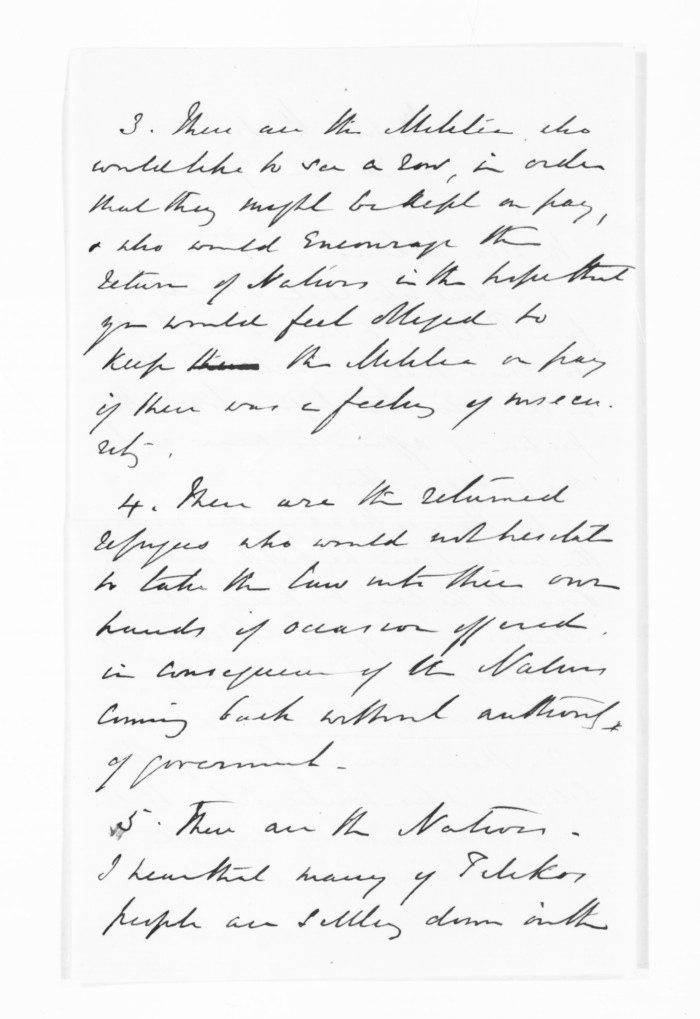 3. There are the Militia who
would like to see a row, in order
that they might be kept on pay,
& who would encourage the
return of Natives in the hope that
you would feel obliged to
keep them the Militia on pay
if there was a feeling of insecu-
rity.
4. There are the returned
refugees who would not hesitate
to take the law into their own
hands if occasion offered.
in consequence of the Natives
coming back without authority
of government -
5. There are the Natives -
I hear that many of Titokos
people are settling down in the